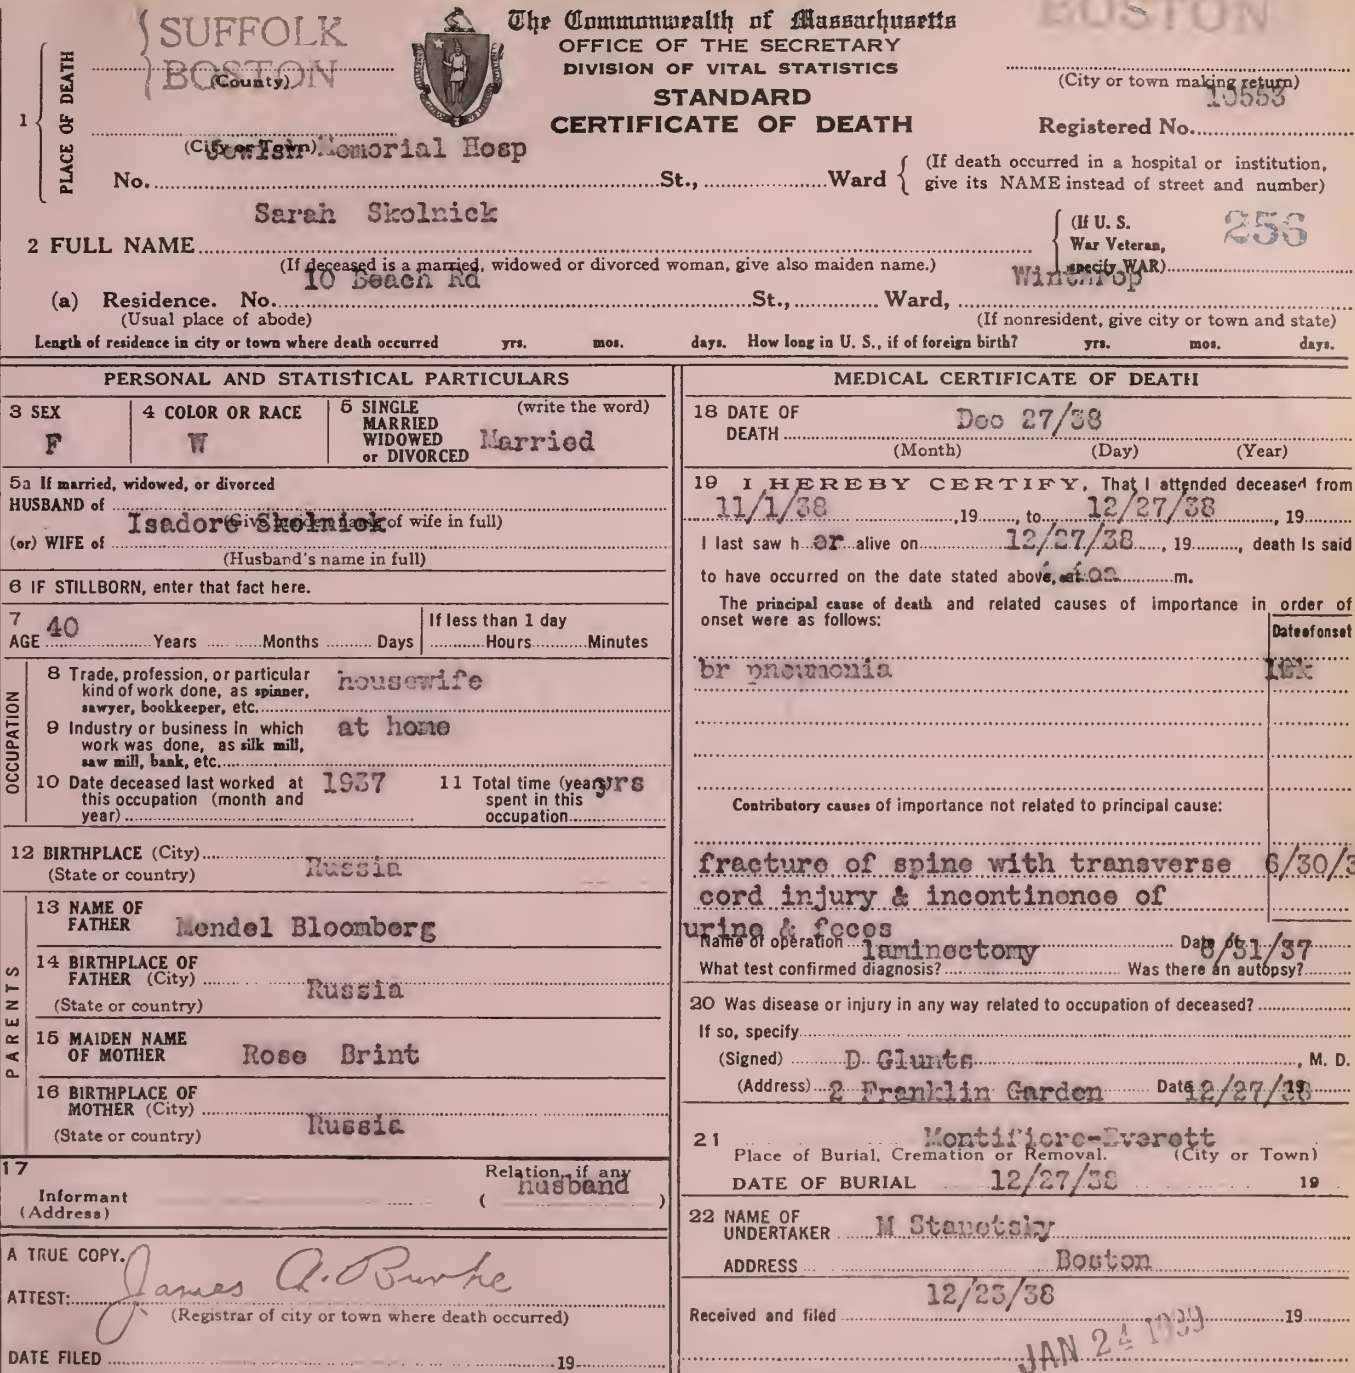 SUFFOLK
BOSTON
(County)
The Commonwealth of Massachusetts
OFFICE OF THE SECRETARY
DIVISION OF VITAL STATISTICS
STANDARD
CERTIFICATE OF DEATH
BOSTON
(City or town making return)
Registered No. 10553
1 PLACE OF DEATH
(City or Town)
Jewish Memorial Hosp
No. St., Ward (If death occurred in a hospital or institution, give its NAME instead of street and number)
Sarah Skolnick
2 FULL NAME
(If deceased is a married, widowed or divorced woman, give also maiden name.)
(If U. S. War Veteran, specify WAR)
256
10 Beach Rd
Winthrop
(a) Residence. No. St., Ward,
(Usual place of abode)
(If nonresident, give city or town and state)
Length of residence in city or town where death occurred yrs. mos. days. How long in U. S., if of foreign birth? yrs. mos. days.
PERSONAL AND STATISTICAL PARTICULARS
3 SEX
F
4 COLOR OR RACE
W
5 SINGLE MARRIED WIDOWED or DIVORCED (write the word)
Married
5a If married, widowed, or divorced
HUSBAND of
Isadore Skolnick
(Give maiden name of wife in full)
(or) WIFE of
(Husband's name in full)
6 IF STILLBORN, enter that fact here.
7 AGE 40 Years Months Days
If less than 1 day
Hours Minutes
OCCUPATION
8 Trade, profession, or particular kind of work done, as spinner, sawyer, bookkeeper, etc.
housewife
9 Industry or business in which work was done, as silk mill, saw mill, bank, etc.
at home
10 Date deceased last worked at this occupation (month and year)
1937
11 Total time (years) spent in this occupation
yrs
12 BIRTHPLACE (City)
(State or country) Russia
PARENTS
13 NAME OF FATHER Mendel Bloomberg
14 BIRTHPLACE OF FATHER (City)
(State or country) Russia
15 MAIDEN NAME OF MOTHER Rose Brint
16 BIRTHPLACE OF MOTHER (City)
(State or country) Russia
17
Informant
(Address)
Relation, if any
( husband )
A TRUE COPY.
ATTEST: James A. Burke
(Registrar of city or town where death occurred)
DATE FILED 19
MEDICAL CERTIFICATE OF DEATH
18 DATE OF DEATH Dec 27/38
(Month) (Day) (Year)
19 I HEREBY CERTIFY, That I attended deceased from
11/1/38, 19, to 12/27/38, 19
I last saw h er alive on 12/27/38, 19, death is said
to have occurred on the date stated above, at m.
The principal cause of death and related causes of importance in order of onset were as follows:
Date of onset
br pneumonia
Contributory causes of importance not related to principal cause:
fracture of spine with transverse 6/30/3
cord injury & incontinence of
urine & feces
Name of operation laminectomy Date of /31/37
What test confirmed diagnosis? Was there an autopsy?
20 Was disease or injury in any way related to occupation of deceased?
If so, specify
(Signed) D Glunts, M. D.
(Address) 2 Franklin Garden Date 12/27/38 19
21 Montifiore-Everett
Place of Burial, Cremation or Removal. (City or Town)
DATE OF BURIAL 12/27/38 19
22 NAME OF UNDERTAKER M Stanetsky
ADDRESS Boston
12/23/38
Received and filed 19
JAN 24 1939